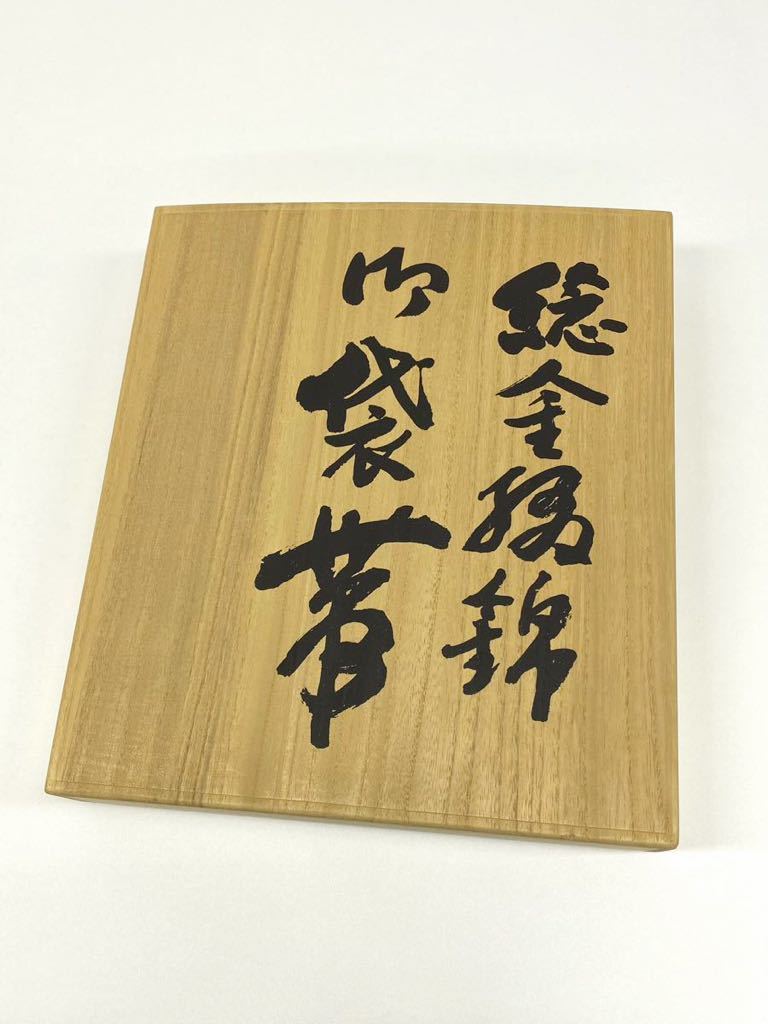 総金錦
御袋帯